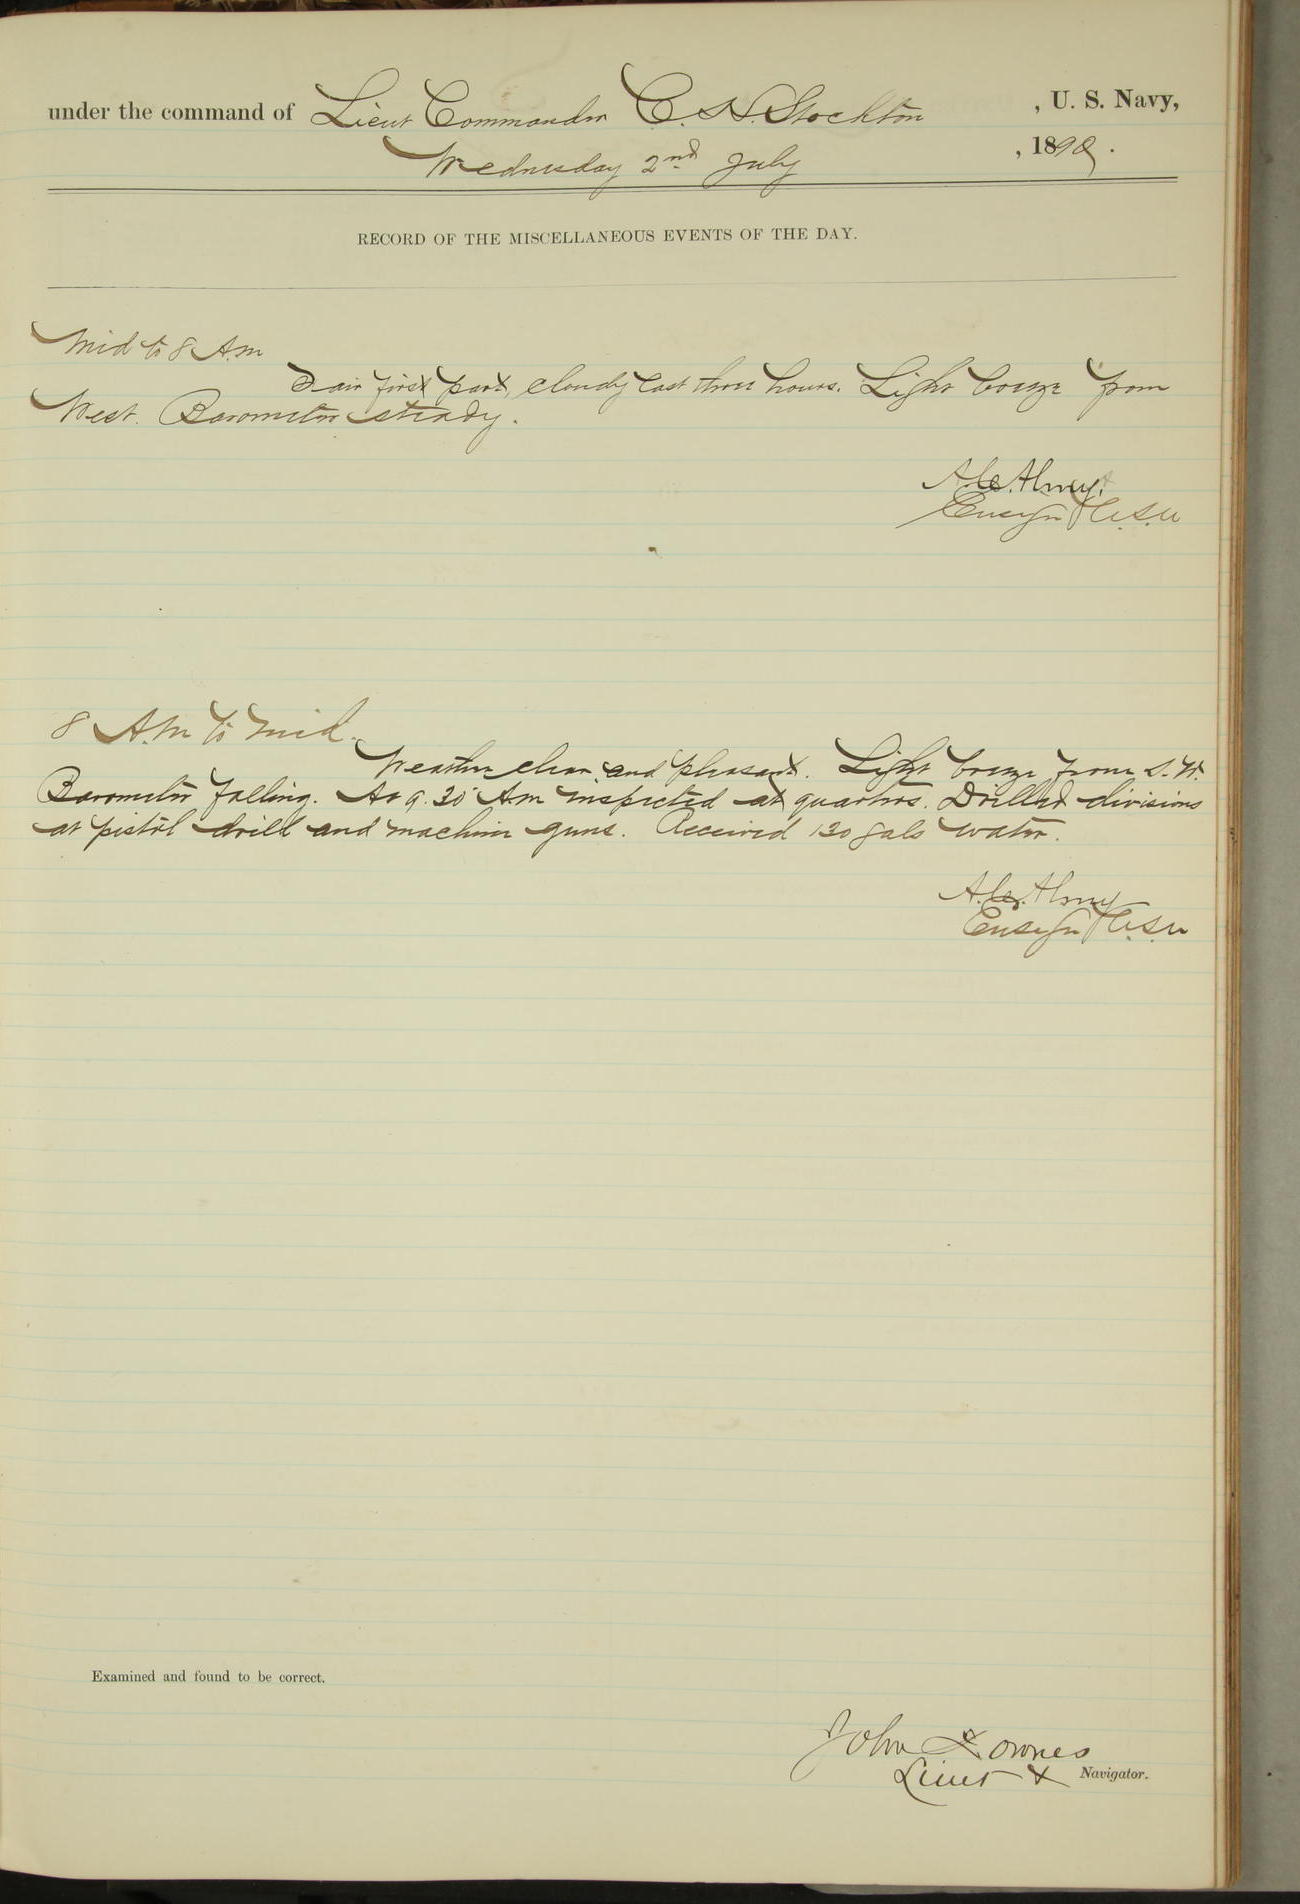 under the command of Lieut Commander C. H. Stockton , U. S. Navy,
Wednesday 2nd July , 1890.
RECORD OF THE MISCELLANEOUS EVENTS OF THE DAY.
Mid to 8 A.m
Fair first part, cloudy last three hours. Light breeze from
West. Barometer steady.
A. C. Almy.
Ensign U.S.N
8 A.M to mid.
Weather clear and pleasant. Light breeze from S. W.
Barometer falling. At 9.30 A.m inspected at quarters. Drilled divisions
at pistol drill and machine guns. Received 130 gals water.
A. C. Almy
Ensign U.S.N
Examined and found to be correct.
John Downes
Lieut & Navigator.